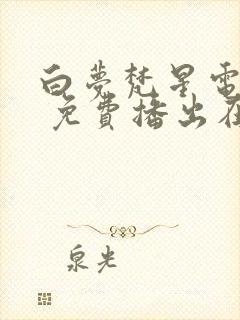 白夢梵星電
免費播出在
泉光